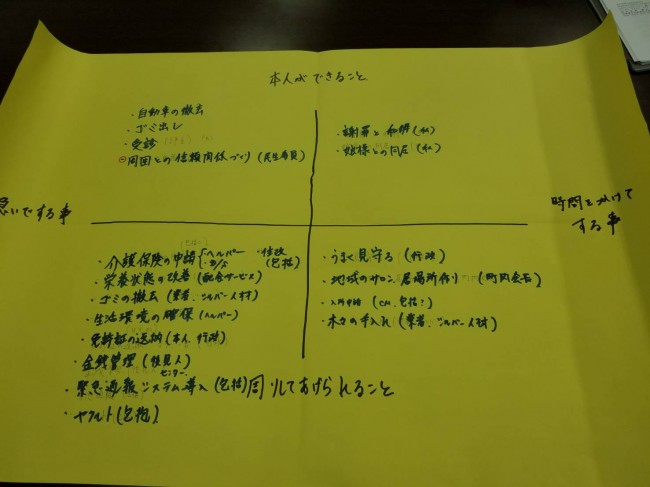 本人ができること
・自動車の撤去
・ゴミ出し
・受診
・周囲との信頼関係づくり (民生委員)
・謝罪と和解 (私)
・娘様との同居 (私)
急いでする事
時間をかけて
する事
・介護保険の申請 ヘルパー ・住改
D/S (包括)
・栄養状態の改善 (配食サービス)
・ゴミの撤去 (業者、シルバー人材)
・生活環境の確保 (ヘルパー)
・免許証の返納 (本人、行政)
・金銭管理 (後見人)
センター
・緊急通報システム導入 (包括)
・ヤクルト (包括)
・うまく見守る (行政)
・地域のサロン、居場所作り (町内会長)
・入所申請 (CM、包括?)
・木々の手入れ (業者、シルバー人材)
周りしてあげられること